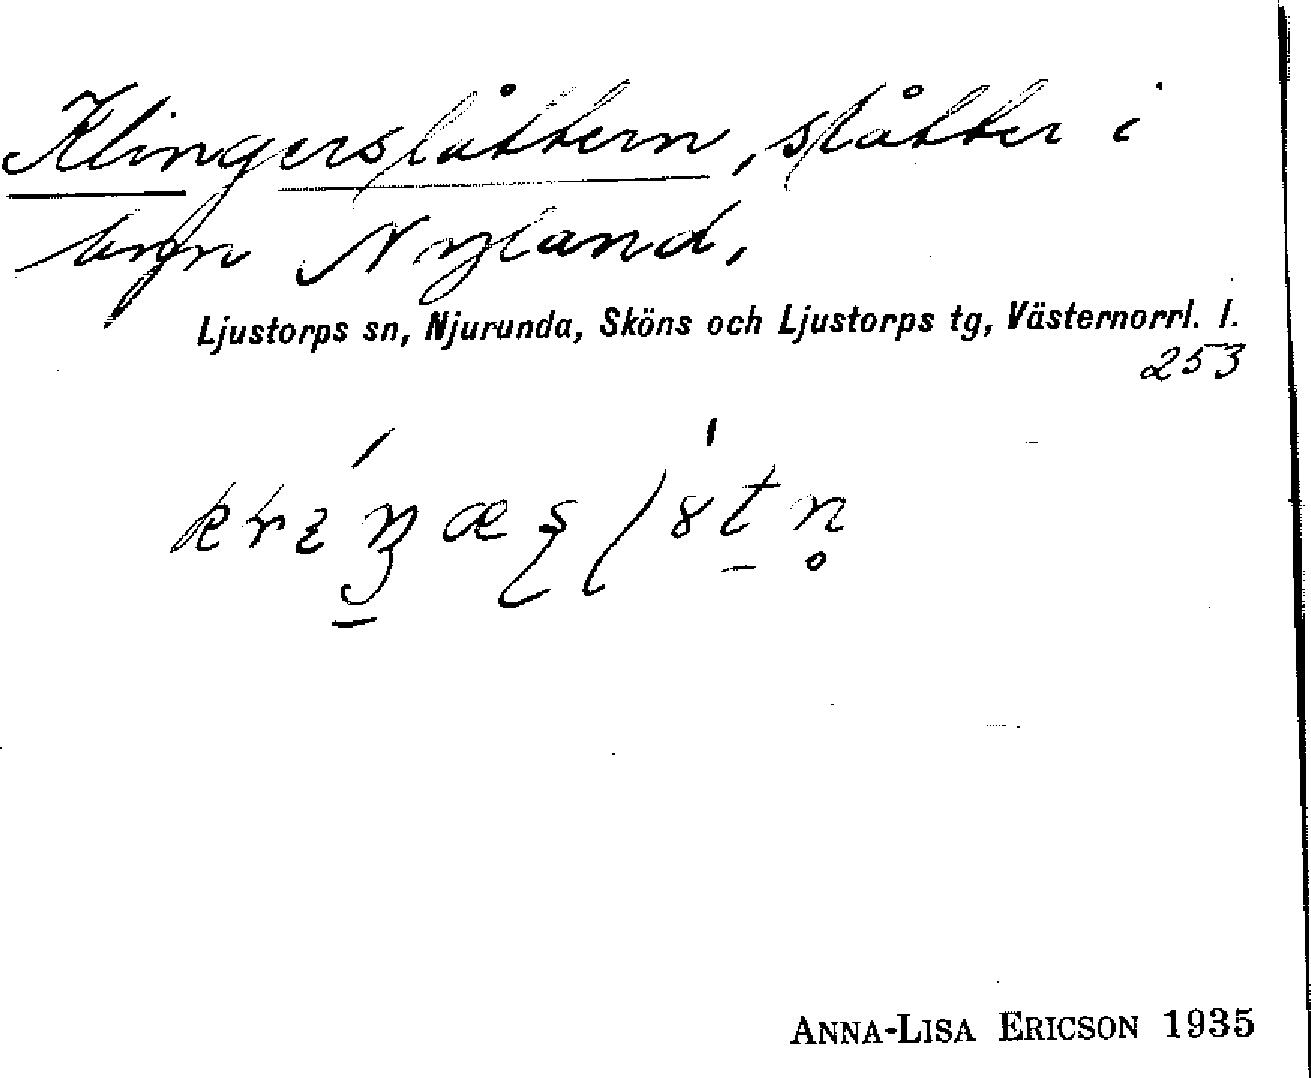 Klingerslåttern, slåtter i
byn Nyland.
Ljustorps sn, Njurunda, Sköns och Ljustorps tg, Västernorrl. l.
253
ANNA-LISA ERICSON 1935